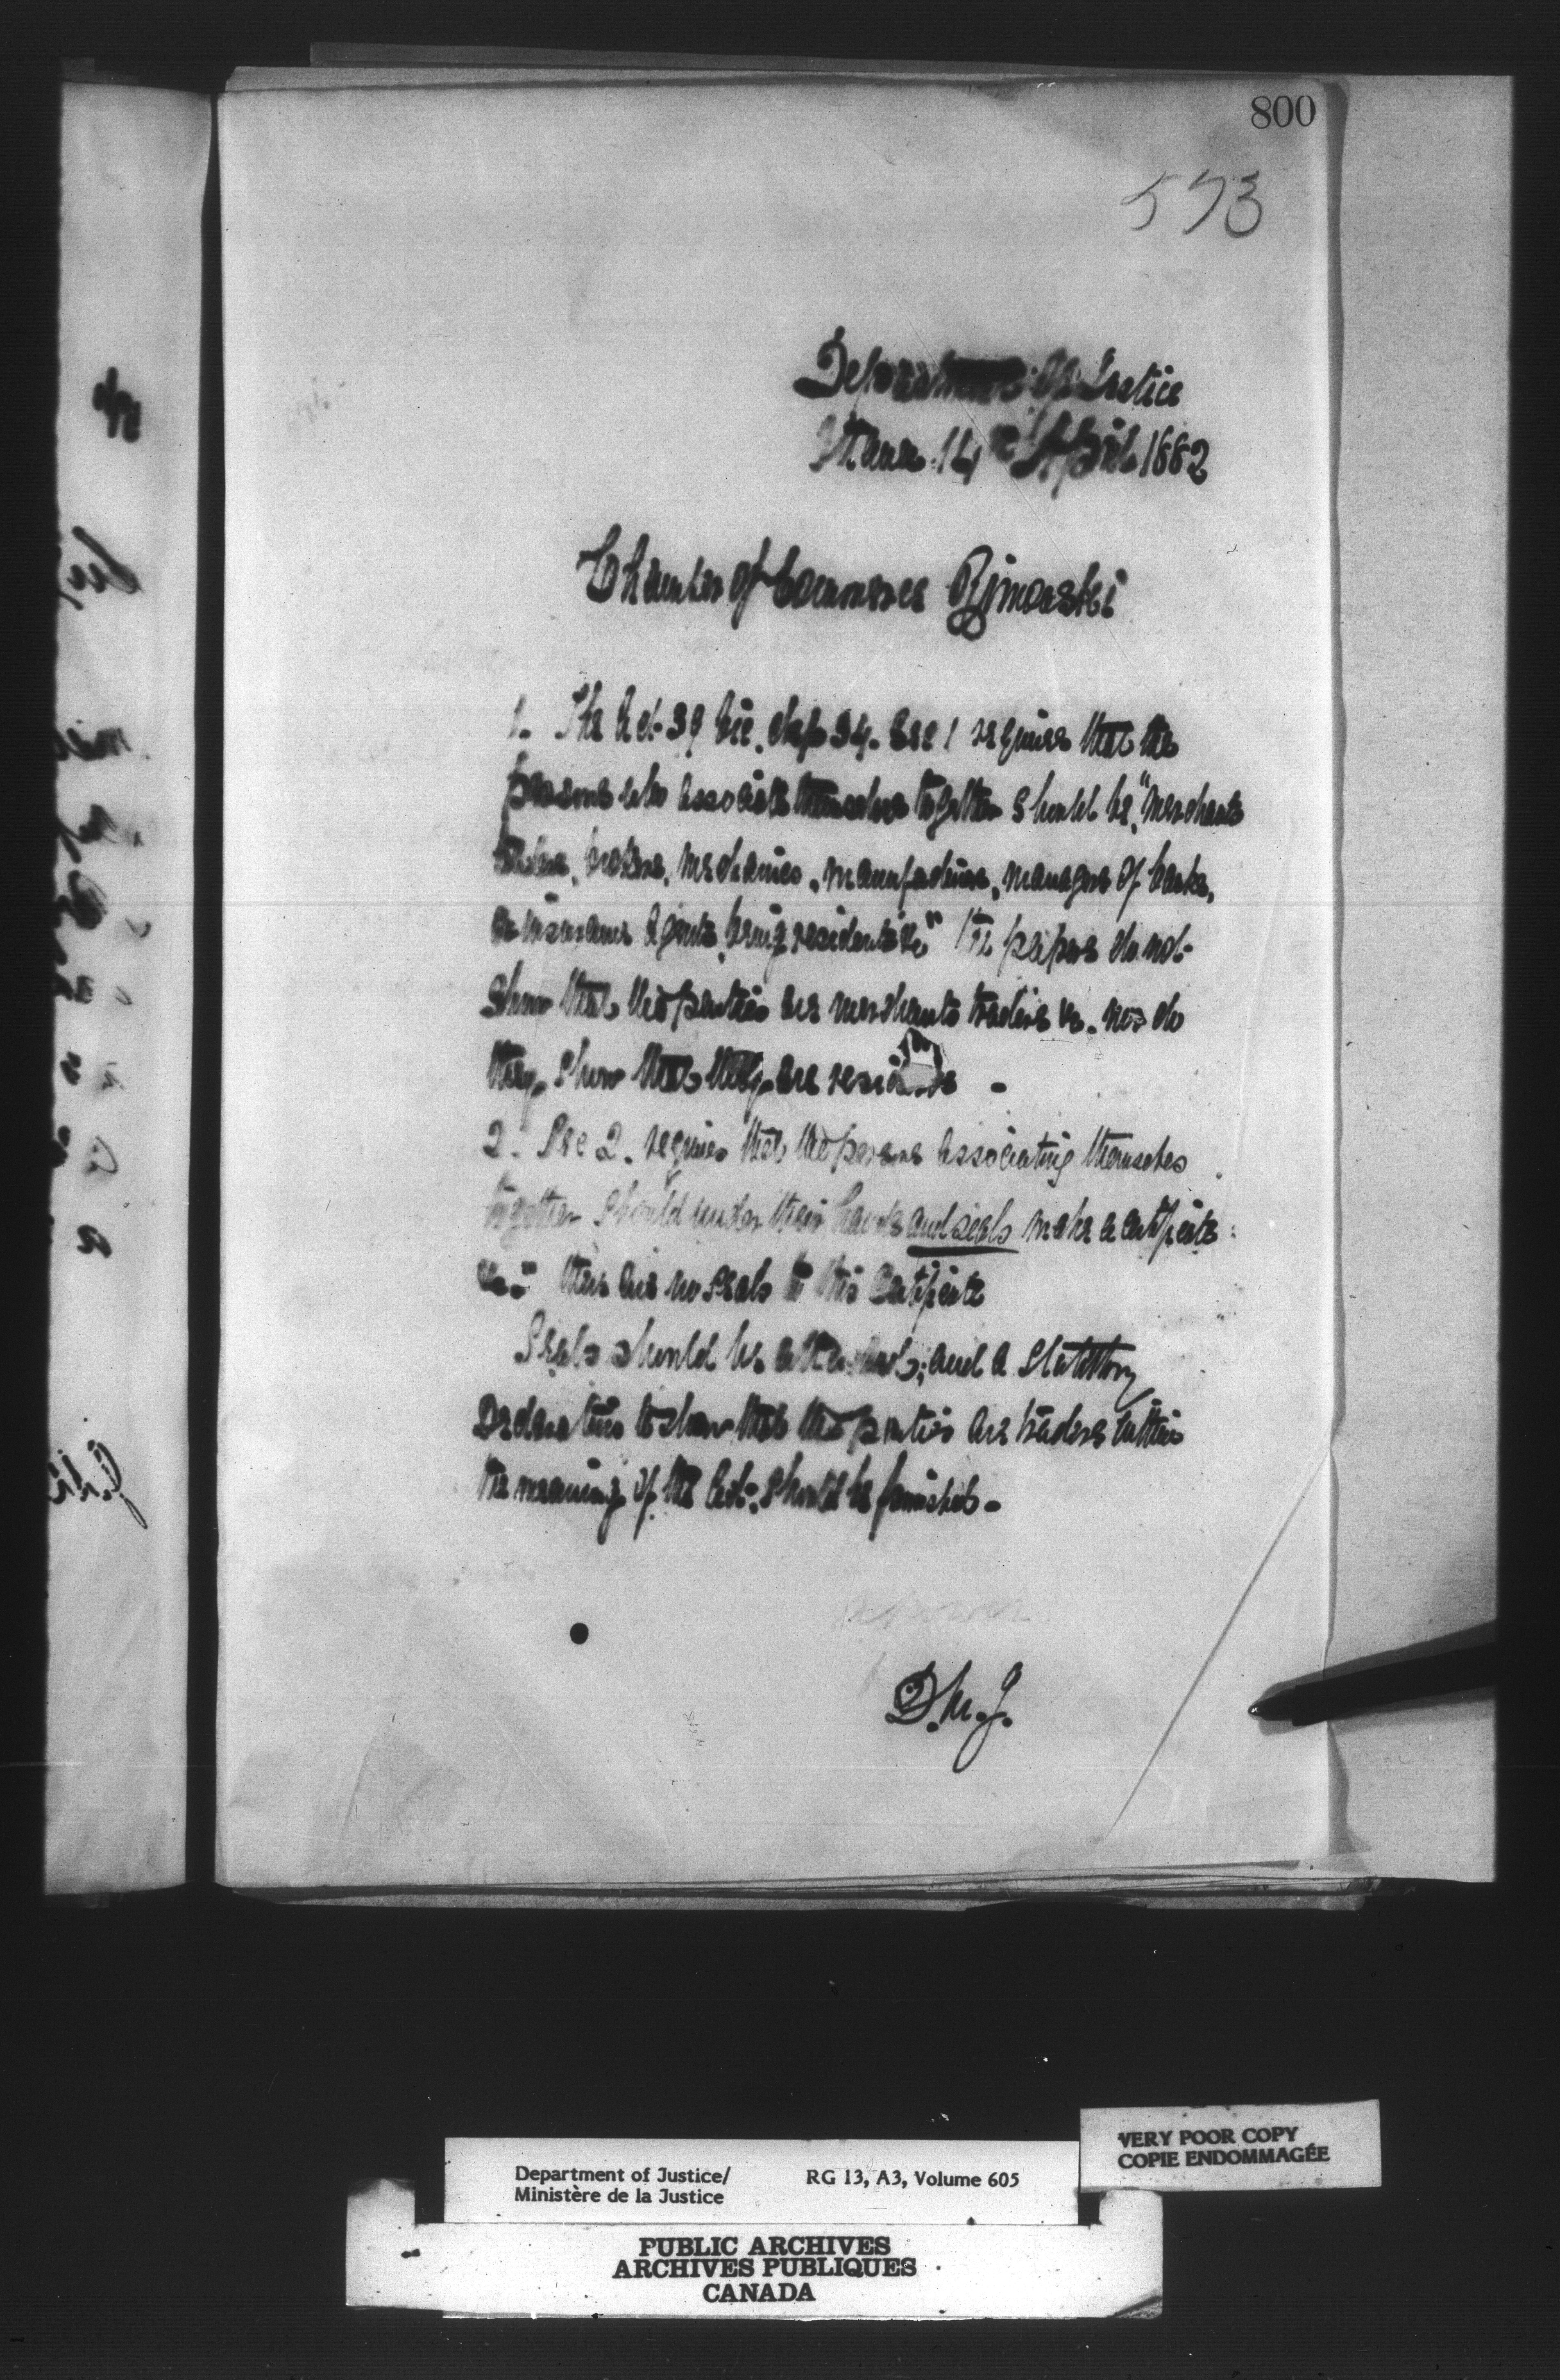 800
573
Department of Justice
Ottawa 14th April 1882
Chamber of Commerce Rimouski
1. The Act 39 Vic. chap 34. Sec 1 requires that the
persons who associate themselves together should be, "merchants
traders, brokers, mechanics, manufacturers, managers of banks,
or insurance agents, being residents &c" The papers do not
show that the parties are merchants traders &c. nor do
they show that they are residents -
2. Sec 2. requires that the persons associating themselves
together should under their hands and seals make a certificate
&c." there are no seals to this certificate
Seals should be attached; and a Statutory
Declaration to show that the parties are traders within
the meaning of the Act, should be furnished -
D.M.J.
Department of Justice/
Ministère de la Justice
RG 13, A3, Volume 605
VERY POOR COPY
COPIE ENDOMMAGÉE
PUBLIC ARCHIVES
ARCHIVES PUBLIQUES
CANADA